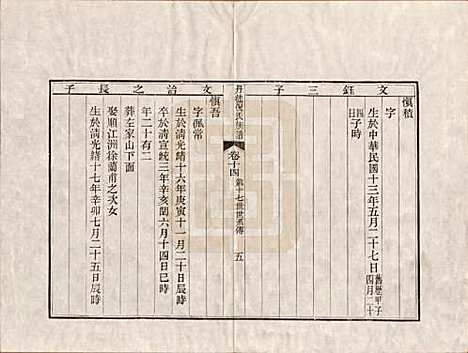 文鈺三子
慎積
字
生於中華民國十三年五月二十七日舊歷甲子四月二十四日子時
卷十四 第十七世世系傳 五
文詒之長子
慎吾
字佩常
生於清光緒十六年庚寅十一月二十日辰時
卒於清宣統三年辛亥閏六月十四日巳時
年二十有二
葬左家山下面
娶順江洲徐蘭甫之次女
生於清光緒十七年辛卯七月二十五日辰時